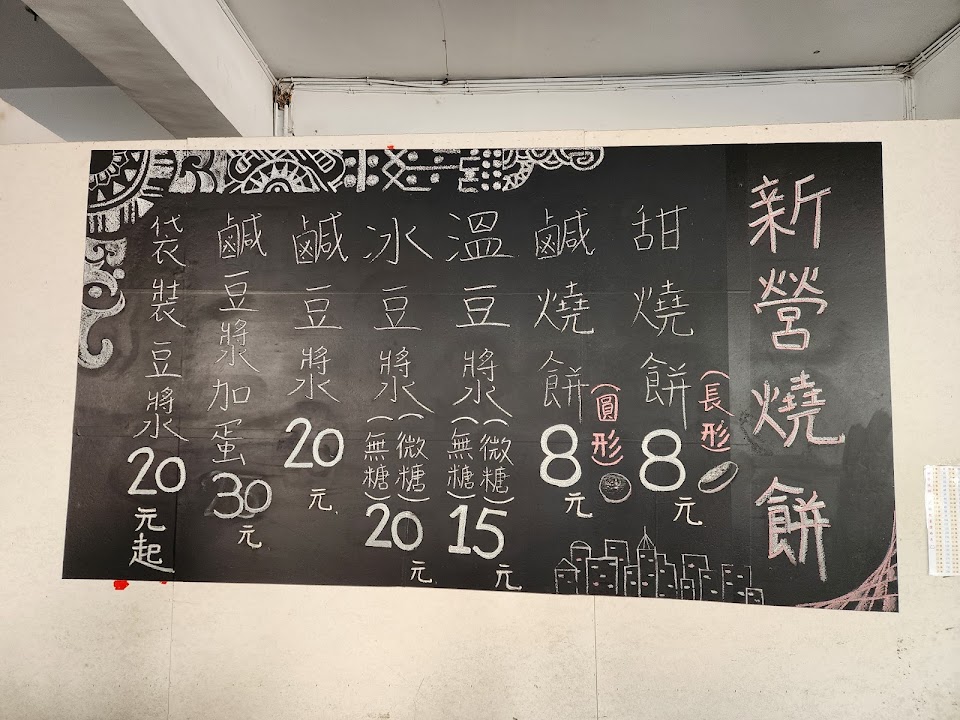 新營燒餅
甜燒餅(長形)8元
鹹燒餅(圓形)8元
溫豆漿(微糖)(無糖)15元
冰豆漿(微糖)(無糖)20元
鹹豆漿20元
鹹豆漿加蛋30元
袋裝豆漿20元起